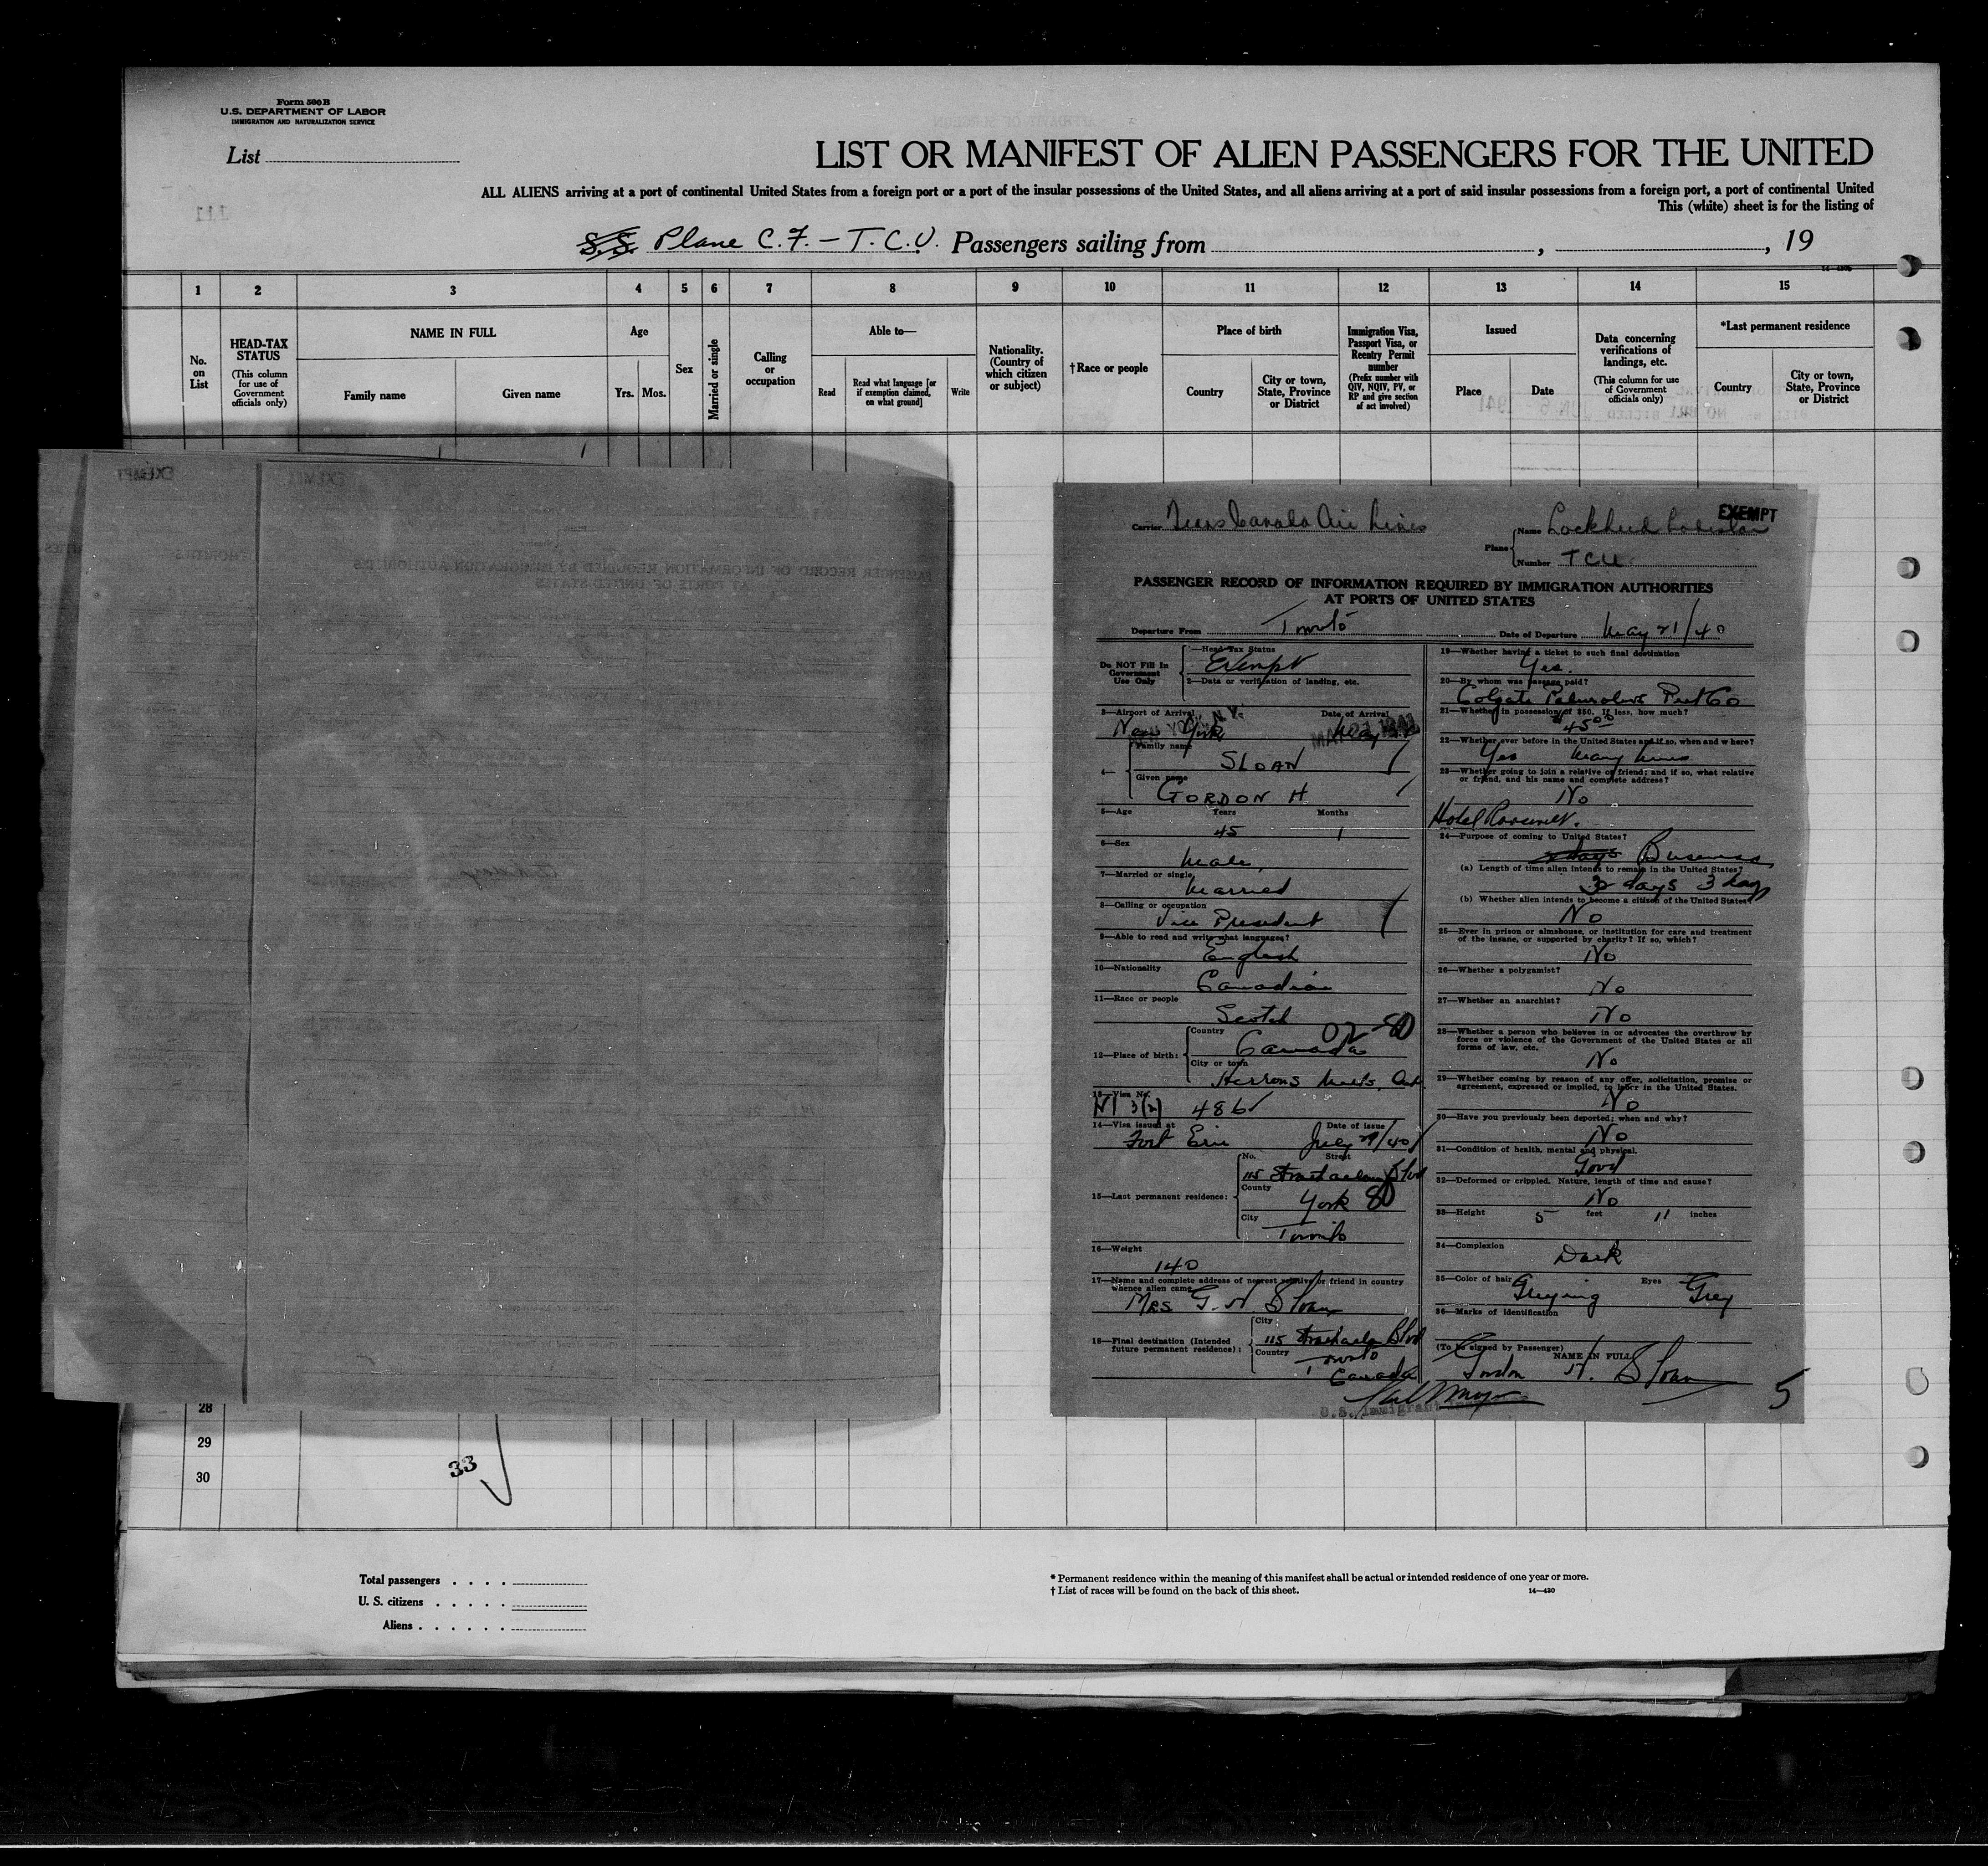 Form 500 B
U.S. DEPARTMENT OF LABOR
IMMIGRATION AND NATURALIZATION SERVICE
List
LIST OR MANIFEST OF ALIEN PASSENGERS FOR THE UNITED
ALL ALIENS arriving at a port of continental United States from a foreign port or a port of the insular possessions of the United States, and all aliens arriving at a port of said insular possessions from a foreign port, a port of continental United
This (white) sheet is for the listing of
S.S. Plane C.F.-T.C.U. Passengers sailing from , , 19
1 2 3 4 5 6 7 8 9 10 11 12 13 14 15
No. on List
HEAD-TAX STATUS
(This column for use of Government officials only)
NAME IN FULL
Family name
Given name
Age
Yrs. Mos.
Sex
Married or single
Calling or occupation
Able to—
Read
Read what language [or if exemption claimed, on what ground]
Write
Nationality. (Country of which citizen or subject)
†Race or people
Place of birth
Country
City or town, State, Province or District
Immigration Visa, Passport Visa, or Reentry Permit number
(Prefix number with QIV, NQIV, PV, or RP and give section of act involved)
Issued
Place
Date
Data concerning verifications of landings, etc.
(This column for use of Government officials only)
*Last permanent residence
Country
City or town, State, Province or District
EXEMPT
Carrier Trans Canada Air Lines
Plane Name Lockheed Lodestar
Number TCU
PASSENGER RECORD OF INFORMATION REQUIRED BY IMMIGRATION AUTHORITIES
AT PORTS OF UNITED STATES
Departure From Toronto Date of Departure May 21/40
Do NOT Fill In Government Use Only
1—Head Tax Status
Exempt
2—Data or verification of landing, etc.
3—Airport of Arrival Date of Arrival
New York May
4— Family name
SLOAN
Given name
GORDON H
5—Age Years Months
45 1
6—Sex
Male
7—Married or single
Married
8—Calling or occupation
Vice President
9—Able to read and write what languages?
English
10—Nationality
Canadian
11—Race or people
Scotch
02-80
12—Place of birth: Country
Canada
City or town
Herrons Mills, Ont
13—Visa No.
3(2) 486
14—Visa issued at Date of issue
Fort Erie July 29/40
15—Last permanent residence: No. Street
115 Blvd
County
York 80
City
Toronto
16—Weight
140
17—Name and complete address of nearest relative or friend in country whence alien came
Mrs G. H Sloan
18—Final destination (Intended future permanent residence): City
115 Blvd
Country
Toronto
Canada
19—Whether having a ticket to such final destination
Yes.
20—By whom was passage paid?
Colgate Palmolive Peet Co
21—Whether in possession of $50. If less, how much?
$45.00
22—Whether ever before in the United States and if so, when and where?
Yes Many times
23—Whether going to join a relative or friend; and if so, what relative or friend, and his name and complete address?
No
Hotel Roosevelt.
24—Purpose of coming to United States?
Business
(a) Length of time alien intends to remain in the United States?
3 days 3 days
(b) Whether alien intends to become a citizen of the United States?
No
25—Ever in prison or almshouse, or institution for care and treatment of the insane, or supported by charity? If so, which?
No
26—Whether a polygamist?
No
27—Whether an anarchist?
No
28—Whether a person who believes in or advocates the overthrow by force or violence of the Government of the United States or all forms of law, etc.
No
29—Whether coming by reason of any offer, solicitation, promise or agreement, expressed or implied, to labor in the United States.
No
30—Have you previously been deported; when and why?
No
31—Condition of health, mental and physical.
Good
32—Deformed or crippled. Nature, length of time and cause?
No
33—Height 5 feet 11 inches
34—Complexion
Dark
35—Color of hair Greying Eyes Grey
36—Marks of identification
(To be signed by Passenger)
NAME IN FULL
Gordon H. Sloan
U.S. Immigrant
5
28
29
30
33
Total passengers
U. S. citizens
Aliens
* Permanent residence within the meaning of this manifest shall be actual or intended residence of one year or more.
† List of races will be found on the back of this sheet. 14—420